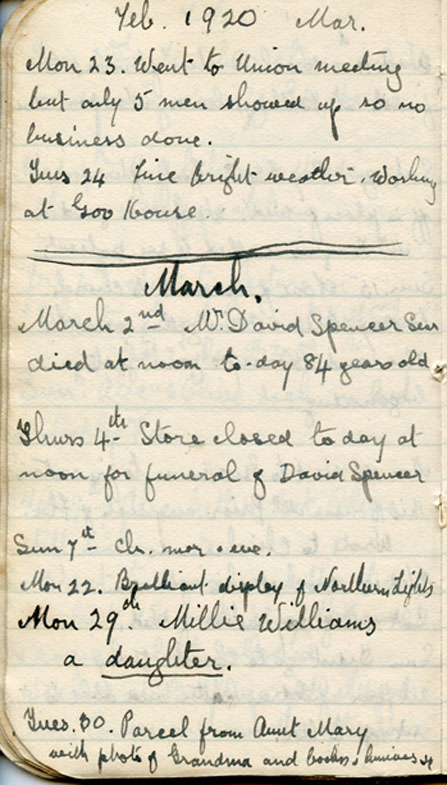 Feb. 1920 Mar.
Mon 23. Went to Union meeting
but only 5 men showed up so no
business done.
Tues 24 Fine bright weather. Working
at Gov House.
March.
March 2nd Mr. David Spencer Senr
died at noon to-day 84 years old
Thurs 4th Store closed to day at
noon for funeral of David Spencer
Sun 7th Ch. mor. & eve.
Mon 22. Brilliant display of Northern Lights
Mon 29th Millie Williams
a daughter.
Tues. 30. Parcel from Aunt Mary
with photo of Grandma and books